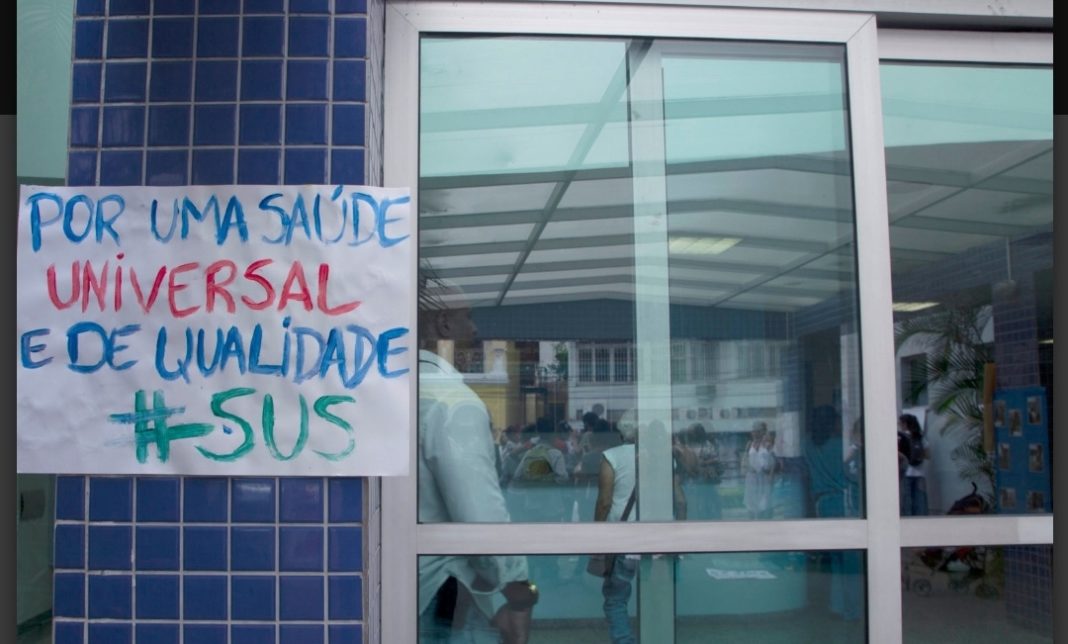 POR UMA SAÚDE
UNIVERSAL
E DE QUALIDADE
#SUS